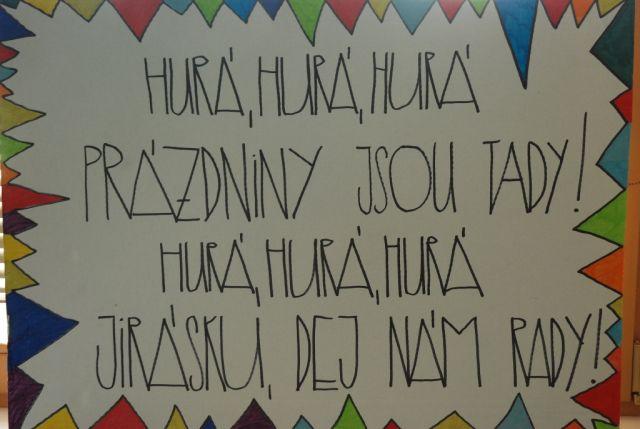 HURÁ, HURÁ, HURÁ
PRÁZDNINY JSOU TADY!
HURÁ, HURÁ, HURÁ
JIRÁSKU, DEJ NÁM RADY!